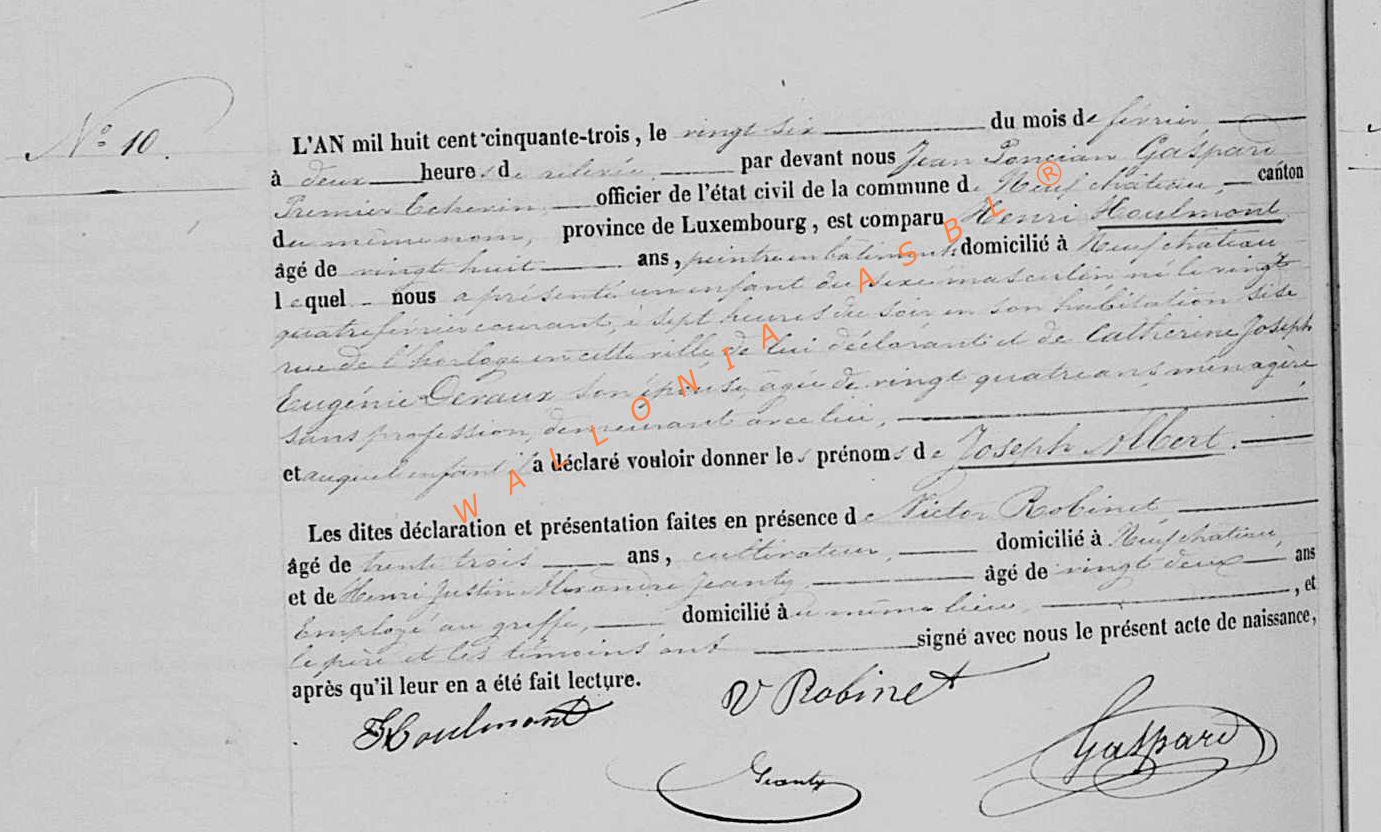 N° 10.
L'AN mil huit cent cinquante-trois, le vingt six du mois de février
à deux heures de relevée, par devant nous Jean Poncian Gaspard
Premier Echevin officier de l'état civil de la commune de Neufchâteau, canton
du même nom, province de Luxembourg, est comparu Henri Houlmont
âgé de vingt huit ans, peintre en bâtiments, domicilié à Neufchateau
lequel nous a présenté un enfant du sexe masculin né le vingt
quatre février courant, à sept heures du soir en son habitation sise
rue de l'horloge en cette ville de lui déclarant et de Catherine Joseph
Eugénie Devaux son épouse, agée de vingt quatre ans ménagère
sans profession, demeurant avec lui,
et auquel enfant il a déclaré vouloir donner les prénoms de Joseph Albert.
Les dites déclaration et présentation faites en présence de Victor Robinet
âgé de trente trois ans, cultivateur, domicilié à Neufchateau,
et de Henri Justin Alexandre Jeanty âgé de vingt deux ans
Employé au greffe, domicilié au même lieu, , et
le père et les témoins ont signé avec nous le présent acte de naissance,
après qu'il leur en a été fait lecture.
HHoulmont
V Robinet
Jeanty
Gaspard
WALLONIA ASBL®